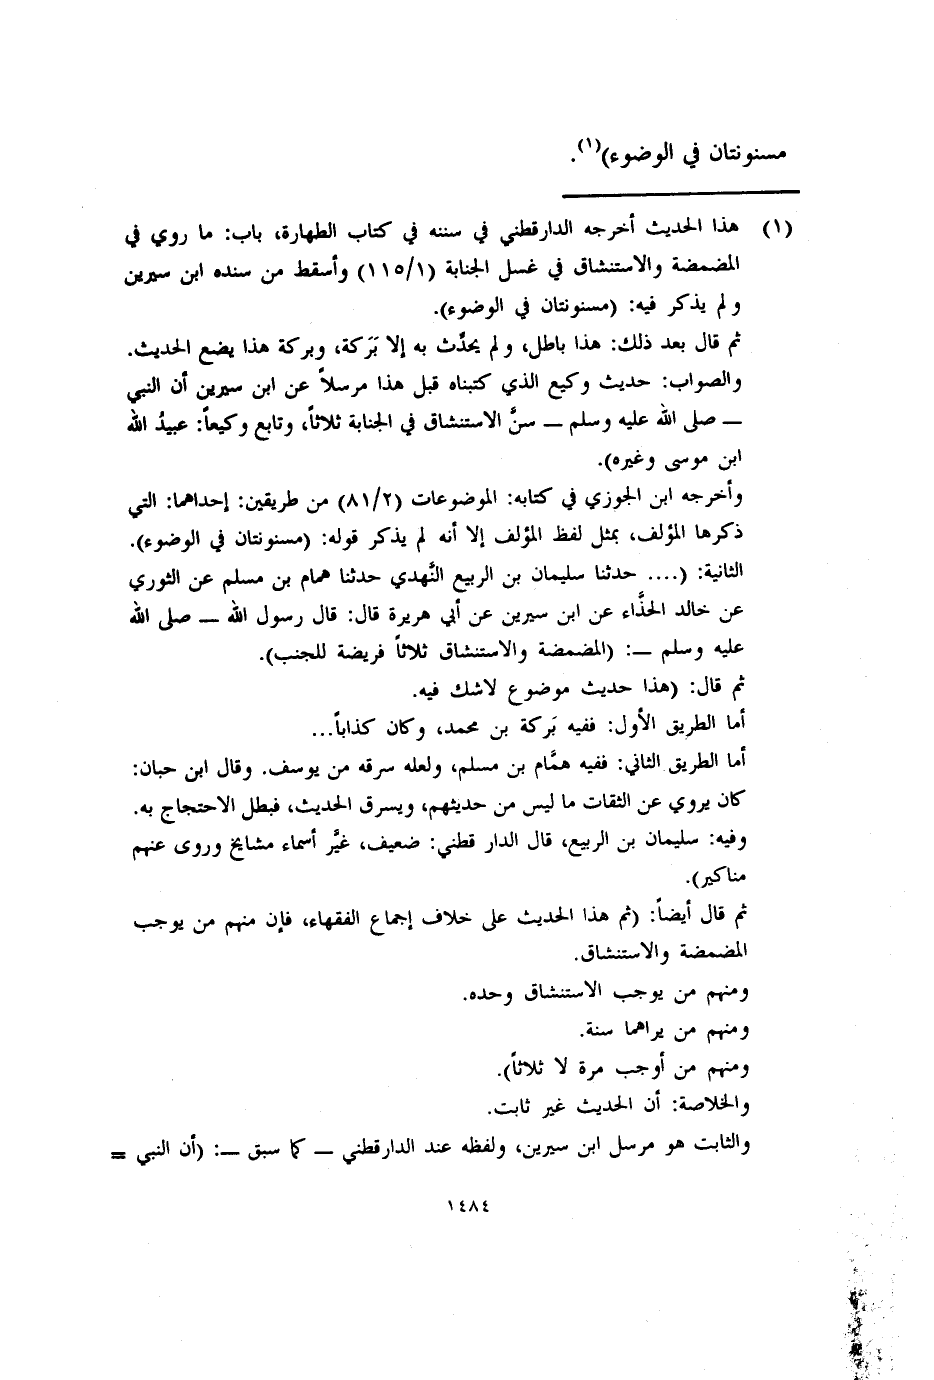 مسنونتان في الوضوء)(١).
(١) هذا الحديث أخرجه الدارقطني في سننه في كتاب الطهارة، باب: ما روي في
المضمضة والاستنشاق في غسل الجنابة (١/١١٥) وأسقط من سنده ابن سيرين
ولم يذكر فيه: (مسنونتان في الوضوء).
ثم قال بعد ذلك: هذا باطل، ولم يحدِّث به إلا بَركة، وبركة هذا يضع الحديث.
والصواب: حديث وكيع الذي كتبناه قبل هذا مرسلاً عن ابن سيرين أن النبي
ــ صلى الله عليه وسلم ــ سنَّ الاستنشاق في الجنابة ثلاثاً، وتابع وكيعاً: عبيدُ الله
ابن موسى وغيره).
وأخرجه ابن الجوزي في كتابه: الموضوعات (٨١/٢) من طريقين: إحداهما: التي
ذكرها المؤلف، بمثل لفظ المؤلف إلا أنه لم يذكر قوله: (مسنونتان في الوضوء).
الثانية: (.... حدثنا سليمان بن الربيع النَّهدي حدثنا همام بن مسلم عن الثوري
عن خالد الحذَّاء عن ابن سيرين عن أبي هريرة قال: قال رسول الله ــ صلى الله
عليه وسلم ــ: (المضمضة والاستنشاق ثلاثاً فريضة للجنب).
ثم قال: (هذا حديث موضوع لاشك فيه.
أما الطريق الأول: ففيه بَركة بن محمد، وكان كذاباً...
أما الطريق الثاني: ففيه همَّام بن مسلم، ولعله سرقه من يوسف. وقال ابن حبان:
كان يروي عن الثقات ما ليس من حديثهم، ويسرق الحديث، فبطل الاحتجاج به.
وفيه: سليمان بن الربيع، قال الدار قطني: ضعيف، غيَّر أسماء مشايخ وروى عنهم
مناكير).
ثم قال أيضاً: (ثم هذا الحديث على خلاف إجماع الفقهاء، فإن منهم من يوجب
المضمضة والاستنشاق.
ومنهم من يوجب الاستنشاق وحده.
ومنهم من يراهما سنة.
ومنهم من أوجب مرة لا ثلاثاً).
والخلاصة: أن الحديث غير ثابت.
والثابت هو مرسل ابن سيرين، ولفظه عند الدارقطني ــ كما سبق ــ: (أن النبي =
١٤٨٤